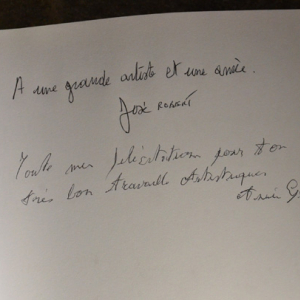 A une grande artiste et une amie.
José ROBERT
Toute mes félicitation pour ton
très bon travaille Artistiques